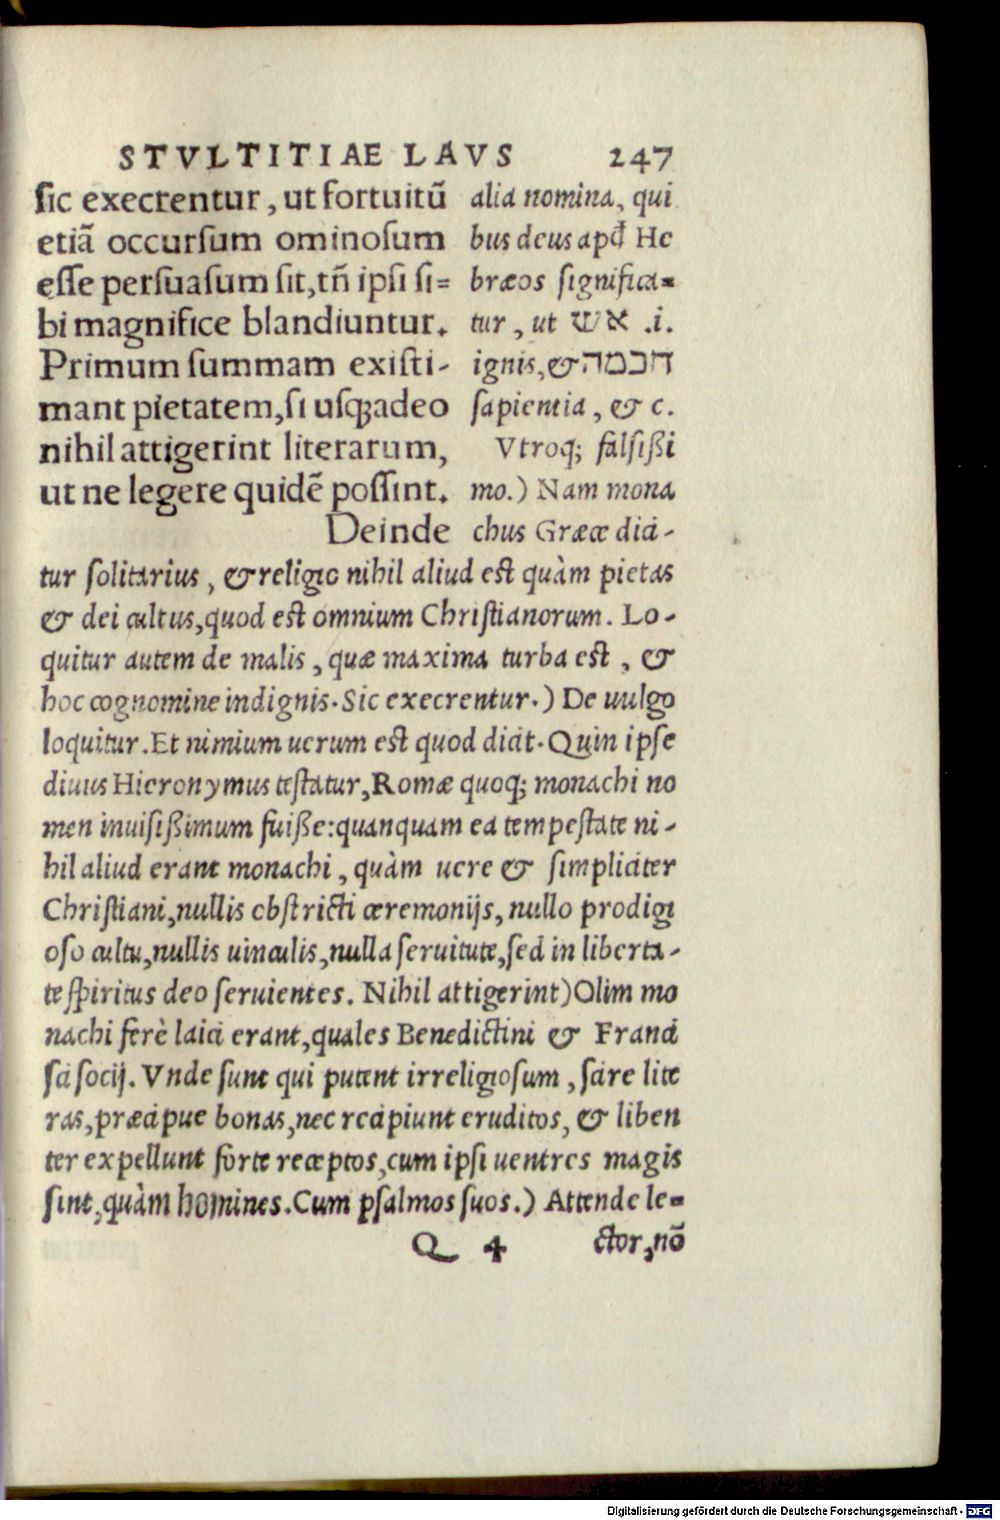 STVLTITIAE LAVS 247
sic execrentur, ut fortuitū
etiā occursum ominosum
esse persuasum sit, tñ ipsi si=
bi magnifice blandiuntur.
Primum summam existi-
mant pietatem, si usq̃adeo
nihil attigerint literarum,
ut ne legere quidē possint.
Deinde
alia nomina, qui
bus deus apđ He
bræos significa=
tur, ut אש .i.
ignis, & חכמה
sapientia, & c.
Vtroq; falsißi
mo.) Nam mona
chus Græce dici-
tur solitarius, & religio nihil aliud est quàm pietas
& dei cultus, quod est omnium Christianorum. Lo-
quitur autem de malis, quæ maxima turba est, &
hoc cognomine indignis. Sic execrentur.) De uulgo
loquitur. Et nimium uerum est quod dicit. Quin ipse
diuus Hieronymus testatur, Romæ quoq; monachi no
men inuisißimum fuiße: quanquam ea tempestate ni-
hil aliud erant monachi, quàm uere & simpliciter
Christiani, nullis obstricti ceremonijs, nullo prodigi
oso cultu, nullis uinculis, nulla seruitute, sed in liberta-
te spiritus deo seruientes. Nihil attigerint) Olim mo
nachi ferè laici erant, quales Benedictini & Franci
sci socij. Vnde sunt qui putent irreligiosum, scire lite
ras, præcipue bonas, nec recipiunt eruditos, & liben
ter expellunt forte receptos, cum ipsi uentres magis
sint, quàm homines. Cum psalmos suos.) Attende le=
Q 4 ctor, nō
Digitalisierung gefördert durch die Deutsche Forschungsgemeinschaft - DFG